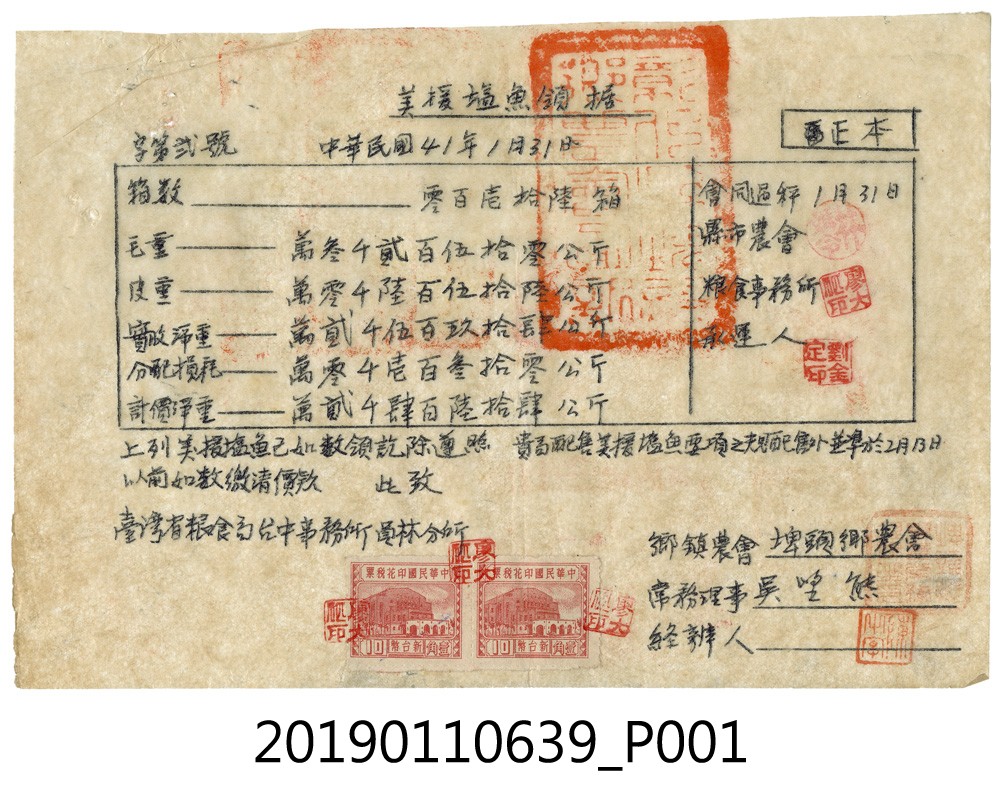 美援塩魚領据
正本
字第弍號
中華民國41年1月31日
箱数 零百壱拾陸箱
毛重 萬叁千貳百伍拾零公斤
皮重 萬零千陸百伍拾陸公斤
實收淨重 萬貳千伍百玖拾肆公斤
分配損耗 萬零千壱百叁拾零公斤
計價淨重 萬貳千肆百陸拾肆公斤
會同過秤 1月31日
縣市農會
粮食事務所
承運人
廖大
印
劉金
定印
上列美援塩魚已如数領訖除遵照 貴局配售美援塩魚要項之規配售外並準於2月13日
以前如数繳清價款 此致
臺湾省粮食局台中事務所員林分所
鄉鎮農會 埤頭鄉農會
常務理事 吳 熊
経辦人
票稅花印國民華中
票稅花印國民華中
10 幣台新 角
10 幣台新 角
20190110639_P001